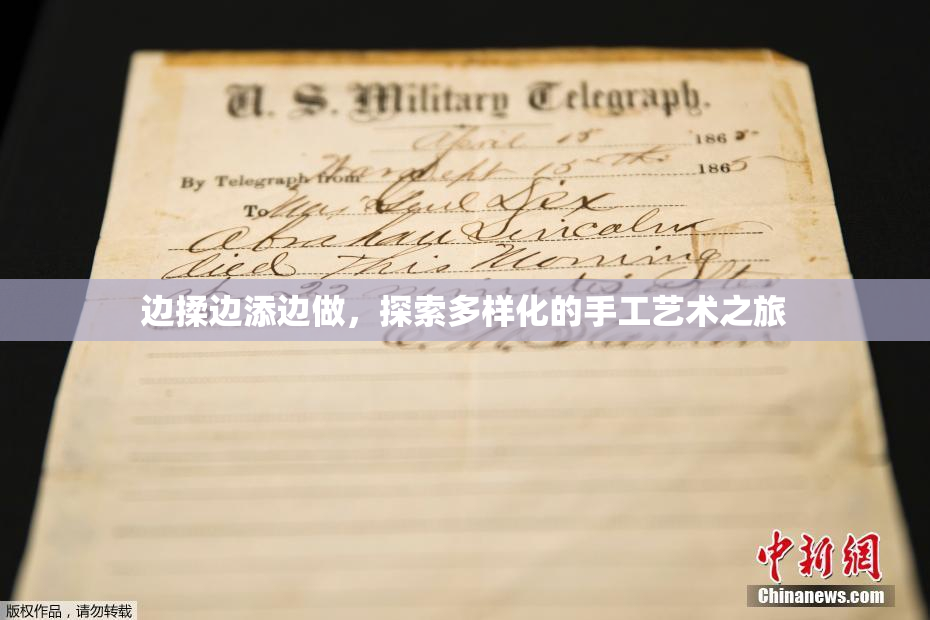 U. S. Military Telegraph.
April 15 1865
By Telegraph from War Dept 15th 1865
To Maj Genl Dix
Abraham Lincoln
died This Morning
at 22 minutes after
边揉边添边做，探索多样化的手工艺术之旅
E. M. Stanton
中新网
Chinanews.com
版权作品，请勿转载